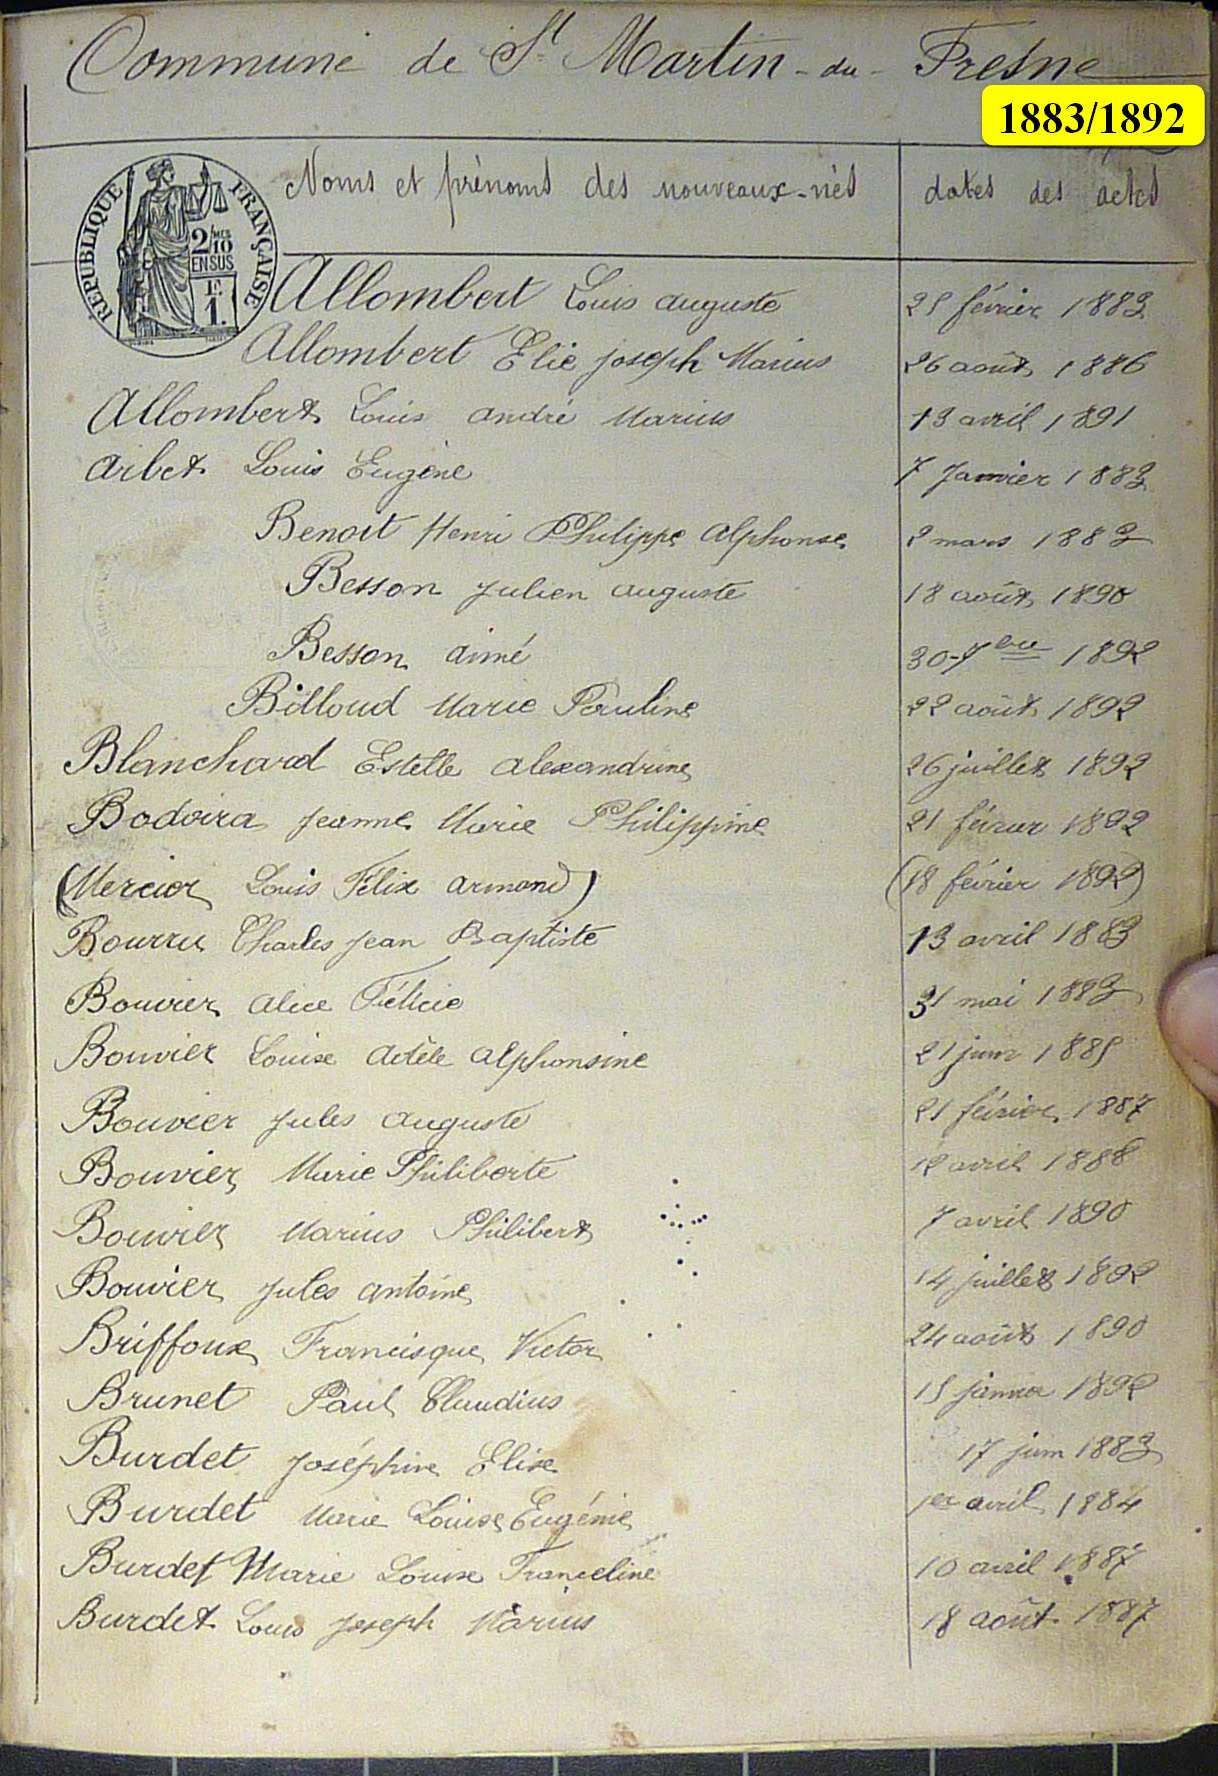 Commune de St Martin-du-Fresne
1883/1892
Noms et prénoms des nouveaux-nés dates des actes
RÉPUBLIQUE FRANÇAISE
2/10 MES
EN SUS
E
1.
Allombert Louis auguste 25 février 1883
Allombert Elie joseph Marius 26 août 1886
Allombert Louis andré Marius 13 avril 1891
Arbet Louis Eugène 7 Janvier 1883
Benoit Henri Philippe alphonse 2 mars 1883
Besson julien auguste 18 août 1890
Besson aimé 30-7bre 1892
Billoud Marie Pauline 22 août 1892
Blanchard Estelle alexandrine 26 juillet 1892
Bodoira jeanne Marie Philippine 21 février 1892
(Mercier Louis Félix armand) (18 février 1892)
Bourru Charles jean Baptiste 13 avril 1883
Bouvier alice Félicie 31 mai 1883
Bouvier Louise adèle alphonsine 21 juin 1885
Bouvier jules auguste 21 février 1887
Bouvier Marie Philiberte 12 avril 1888
Bouvier Marius Philibert 7 avril 1890
Bouvier jules antoine 14 juillet 1892
Briffoux Francisque Victor 24 août 1890
Brunet Paul Claudius 15 janvier 1892
Burdet joséphine Elise 17 juin 1883
Burdet Marie Louise Eugénie 1er avril 1884
Burdet Marie Louise Franceline 10 avril 1887
Burdet Louis joseph Marius 18 août 1887